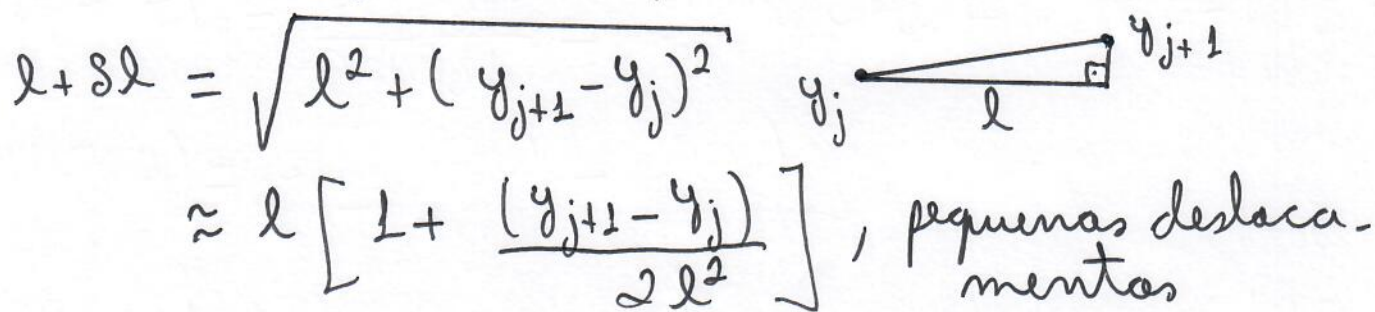 l + δl = √(l² + (y_{j+1} - y_j)²) y_j l y_{j+1}
≈ l [ 1 + (y_{j+1} - y_j) / 2l² ] , pequenos desloca-
mentos